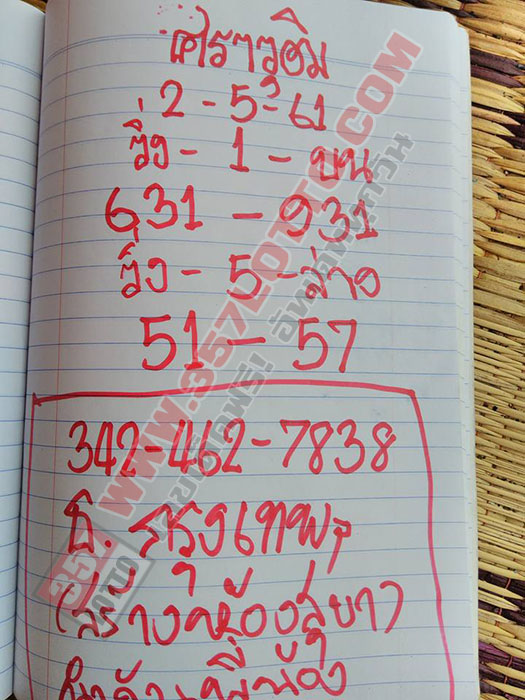 2-5-61
วิ่ง - 1 - บน
631 - 931
วิ่ง - 5 - ล่าง
51 - 57
342-462-7838
ธ. กรุงเทพฯ
(สร้างห้องสุขา)
WWW.357LOTO.COM